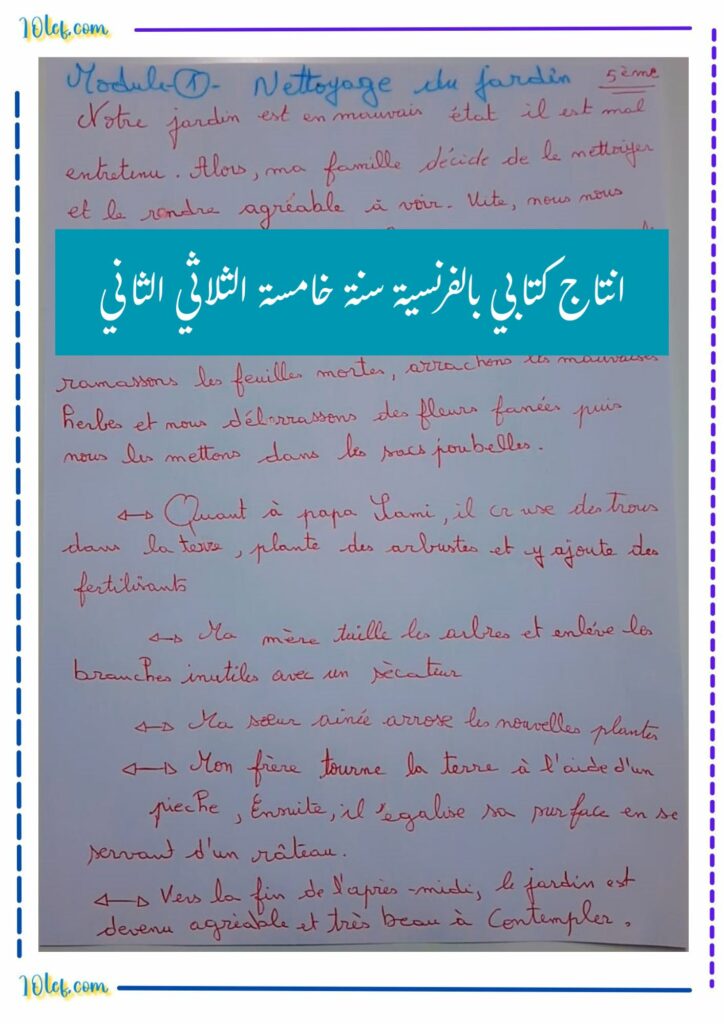 10lcf.com
Module ① - Nettoyage du jardin 5ème
Notre jardin est en mauvais état il est mal
entretenu. Alors, ma famille décide de le nettoyer
et le rendre agréable à voir. Vite, nous nous
انتاج كتابي بالفرنسية سنة خامسة الثلاثي الثاني
ramassons les feuilles mortes, arrachons les mauvaises
herbes et nous débarrassons des fleurs fanées puis
nous les mettons dans les sacs poubelles.
↔ Quant à papa Sami, il creuse des trous
dans la terre, plante des arbustes et y ajoute des
fertilisants
↔ Ma mère taille les arbres et enlève les
branches inutiles avec un sècateur
↔ Ma sœur ainée arrose les nouvelles plantes
↔ Mon frère tourne la terre à l'aide d'un
pieche, Ensuite, il égalise sa surface en se
servant d'un râteau.
↔ Vers la fin de l'après-midi, le jardin est
devenu agréable et très beau à Contempler.
10lcf.com